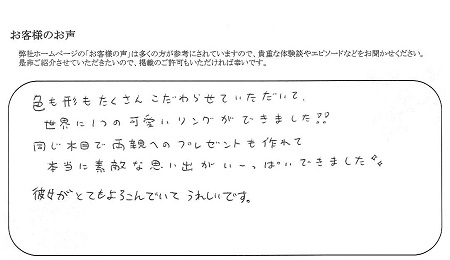 お客様のお声
弊社ホームページの「お客様の声」は多くの方が参考にされていますので、貴重な体験談やエピソードなどをお聞かせください。
是非ご紹介させていただきたいので、掲載のご許可もいただければ幸いです。
色も形もたくさんこだわらせていただいて、
世界に1つの可愛いリングができました!!
同じ木目で両親へのプレゼントも作れて
本当に素敵な思い出がいーっぱいできました
彼女がとてもよろこんでいてうれしいです。